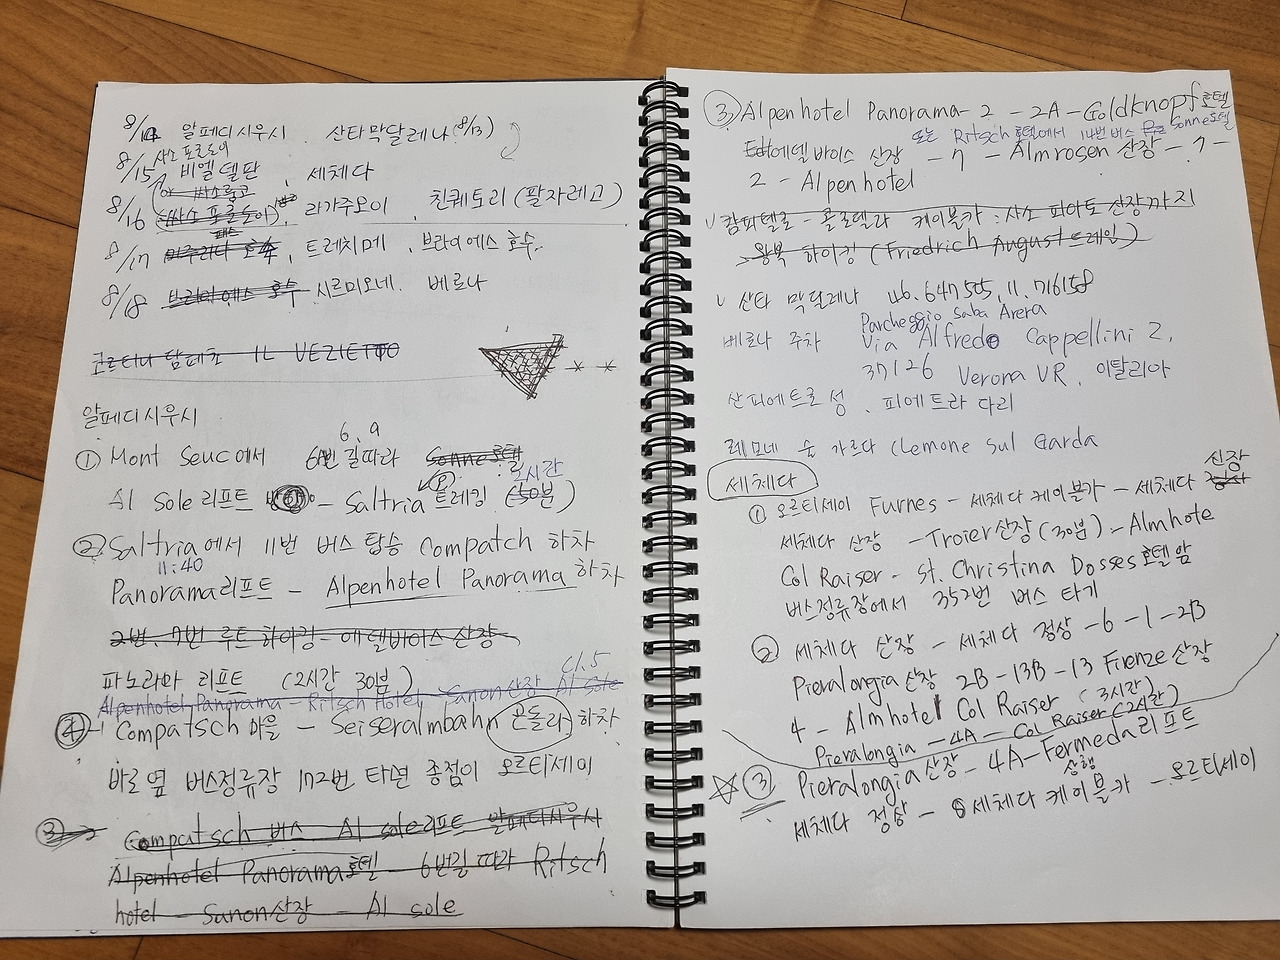 8/14 알페디시우시 산타막달레나(8/13)
사소 포르도이
8/15 비엘델판, 세체다
8/16 (싸소 포르도이), 라가주오이, 친퀘토리(팔자레고)
패스
8/17 미주리나 호수, 트레치메, 브라이에스 호수.
8/18 브라이에스 호수 시르미오네. 베로나
코르티나 담페초 IL VEZIETTO
알페디시우시
6, 9
① Mont Seuc에서 6번 길따라 Sonne호텔
2시간
Al Sole 리프트 - Saltria 트레킹 (50분)
② Saltria에서 11번 버스 탑승 Compatch 하차
11:40
Panorama리프트 - Alpenhotel Panorama 하차
2번, 7번 루트 하이킹 - 에델바이스 산장
파노라마 리프트 (2시간 30분)
Cl.5
Alpenhotel Panorama - Ritsch Hotel Sanon산장 Al sole
④ Compatsch 마을 - Seiseralmbahn 곤돌라 하차
바로 옆 버스정류장 172번 타면 종점이 오르티세이
③ Compatsch 버스 Al sole리프트 알페디시우시
Alpenhotel Panorama호텔 - 6번길 따라 Ritsch
hotel - Sanon산장 - Al sole
③ Alpenhotel Panorama - 2 - 2A - Goldknopf호텔
또는 Ritsch 호텔에서 14번 버스 Sonne호텔
에델바이스 산장 - 7 - Almrosen 산장 - 7 -
2 - Alpenhotel
v 캄피텔로 - 콜로델라 케이블카 : 사소 피아토 산장까지
왕복 하이킹 (Friedrich August 트레일)
v 산타 막달레나 46.647505, 11.716158
Parcheggio Saba Arera
베로나 주차 Via Alfredo Cappellini 2,
37126 Verona VR, 이탈리아
산피에트로 성, 피에트라 다리
레모네 술 가르다 (lemone sul Garda
세체다
산장
① 오르티세이 Furnes - 세체다 케이블카 - 세체다
세체다 산장 - Troier산장(30분) - Almhote
Col Raiser - St. Christina Dosses호텔 앞
버스정류장에서 352번 버스 타기
② 세체다 산장 - 세체다 정상 - 6 - 1 - 2B
Pieralongia 산장 2B - 13B - 13 Firenze 산장
4 - Almhotel Col Raiser (3시간)
Pieralongia - 4A - Col Raiser (2시간)
③ Pieralongia 산장 - 4A - Fermeda리프트
상행
세체다 정상 - 세체다 케이블카 - 오르티세이